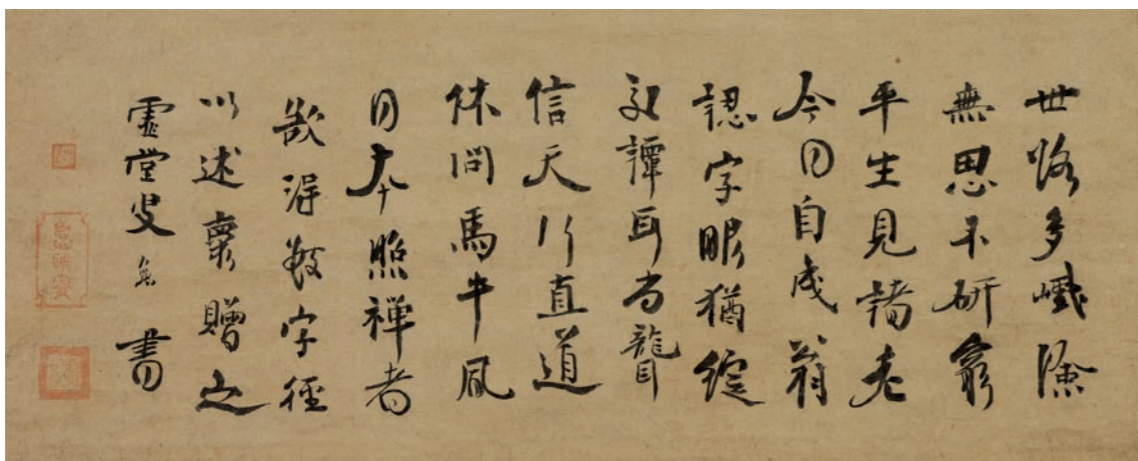 世路多巇險
無思不研窮
平生見諸老
今日自成翁
認字眼猶綻
交譚耳尚聾
信天行直道
休問馬牛風
日夲照禪者
欲得數字徑
以述褱贈之
虛堂叟 書